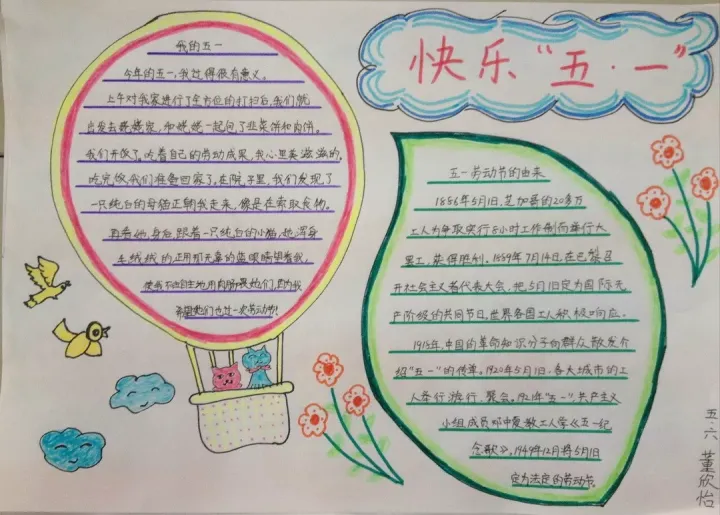 快乐“五·一”
我的五一
今年的五一,我过得很有意义。
上午对我家进行了全方位的打扫后,我们就
出发去姥姥家,和姥姥一起包了韭菜饼和肉饼。
我们开饭了,吃着自己的劳动成果,我心里美滋滋的。
吃完饭我们准备回家了,在院子里,我们发现了
一只纯白的母猫正朝我走来,像是在索取食物。
再看她身后,跟着一只纯白的小猫,他浑身
毛绒绒的,正用那无辜的蓝眼睛望着我,
使我不由自主地用肉肠喂她们,因为我
希望她们也过一次劳动节!
五一劳动节的由来
1886年5月1日,芝加哥的20多万
工人为争取实行8小时工作制而举行大
罢工,获得胜利。1889年7月14日,在巴黎召
开社会主义者代表大会,把5月1日定为国际无
产阶级的共同节日,世界各国工人积极响应。
1915年,中国的革命知识分子向群众散发介
绍“五一”的传单。1920年5月1日,各大城市的工
人举行游行、聚会。1921年“五一”,共产主义
小组成员邓中夏教工人学《五一纪
念歌》。1949年12月将5月1日
定为法定的劳动节。
五.六 董欣怡